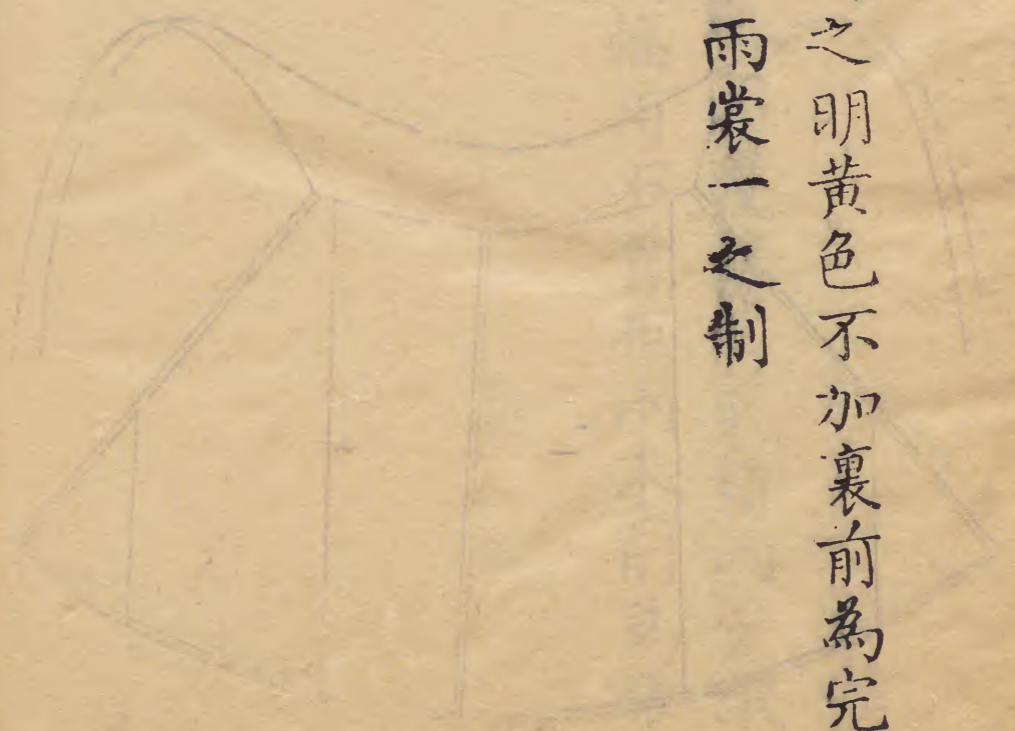 之明黄色不加裏前為完
雨裳一之制